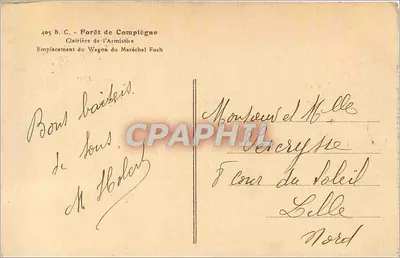 405 B. C. - Forêt de Compiègne
Clairière de l'Armistice
Emplacement du Wagon du Maréchal Foch
Bons baisers
de tous.
M
Monsieur et Melle
Vercrysse
8 cour du Soleil
Lille
Nord
CPAPHIL